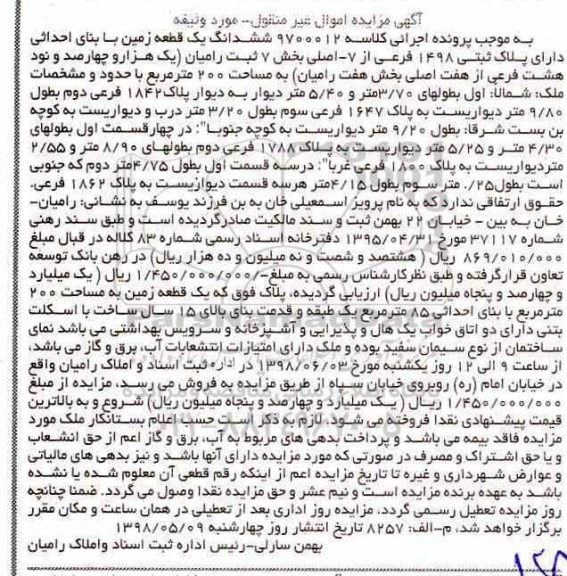 آگهی مزایده اموال غیر منقول- مورد وثیقه
به موجب پرونده اجرائی کلاسه ۹۷۰۰۰۱۲ ششدانگ یک قطعه زمین با بنای احداثی
دارای پلاک ثبتی ۱۴۹۸ فرعی از ۷-اصلی بخش ۷ ثبت رامیان (یک هزارو چهارصد و نود
هشت فرعی از هفت اصلی بخش هفت رامیان) به مساحت ۲۰۰ مترمربع با حدود و مشخصات
ملک: شمالا: اول بطولهای ۳/۷۰متر و ۵/۴۰ متر دیوار به دیوار پلاک۱۸۴۲ فرعی دوم بطول
۹/۸۰ متر دیواریست به پلاک ۱۶۴۷ فرعی سوم بطول ۳/۲۰ متر درب و دیواریست به کوچه
بن بست شرقا: بطول ۹/۲۰ متر دیواریست به کوچه جنوبا": در چهارقسمت اول بطولهای
۴/۳۰ متر و ۵/۲۵ متر دیواریست به پلاک ۱۷۸۸ فرعی دوم بطولهای ۸/۹۰ متر و ۲/۵۵
متردیواریست به پلاک ۱۸۰۰ فرعی غربا": درسه قسمت اول بطول ۴/۷۵متر دوم که جنوبی
است بطول۲۵/. متر سوم بطول ۴/۱۵متر هرسه قسمت دیوازیست به پلاک ۱۸۶۲ فرعی.
حقوق ارتفاقی ندارد که به نام پرویز اسمعیلی خان به بن فرزند یوسف به نشانی: رامیان-
خان به بین - خیابان ۲۲ بهمن ثبت و سند مالکیت صادرگردیده است و طبق سند رهنی
شماره ۳۷۱۱۷ مورخ ۱۳۹۵/۰۴/۳۱ دفترخانه اسناد رسمی شماره ۸۳ کلاله در قبال مبلغ
۸۶۹/۰۱۰/۰۰۰ ریال (هشتصد و شصت و نه میلیون و ده هزار ریال) در رهن بانک توسعه
تعاون قرارگرفته و طبق نظرکارشناس رسمی به مبلغ-/۱/۴۵۰/۰۰۰/۰۰۰ ریال ( یک میلیارد
و چهارصد و پنجاه میلیون ریال) ارزیابی گردیده، پلاک فوق که یک قطعه زمین به مساحت ۲۰۰
مترمربع با بنای احداثی ۸۵ مترمربع یک طبقه و قدمت بنای بالای ۱۵ سال ساخت با اسکلت
بتنی دارای دو اتاق خواب یک هال و پذیرایی و آشپزخانه و سرویس بهداشتی می باشد نمای
ساختمان از نوع سیمان سفید بوده و ملک دارای امتیازات انتشعابات آب، برق و گاز می باشد،
از ساعت ۹ الی ۱۲ روز یکشنبه مورخ ۱۳۹۸/۰۶/۰۳ در اداره ثبت اسناد و املاک رامیان واقع
در خیابان امام (ره) روبروی خیابان سپاه از طریق مزایده به فروش می رسد، مزایده از مبلغ
۱/۴۵۰/۰۰۰/۰۰۰ ریال ( یک میلیارد و چهارصد و پنجاه میلیون ریال) شروع و به بالاترین
قیمت پیشنهادی نقدا فروخته می شود. لازم به ذکر است حسب اعلام بستانکار ملک مورد
مزایده فاقد بیمه می باشد و پرداخت بدهی های مربوط به آب، برق و گاز اعم از حق انشعاب
و یا حق اشتراک و مصرف در صورتی که مورد مزایده دارای آنها باشد و نیز بدهی های مالیاتی
و عوارض شهرداری و غیره تا تاریخ مزایده اعم از اینکه رقم قطعی آن معلوم شده یا نشده
باشد به عهده برنده مزایده است و نیم عشر و حق مزایده نقدا وصول می گردد. ضمنا چنانچه
روز مزایده تعطیل رسمی گردد، مزایده روز اداری بعد از تعطیلی در همان ساعت و مکان مقرر
برگزار خواهد شد، م-الف: ۸۲۵۷ تاریخ انتشار روز چهارشنبه ۱۳۹۸/۰۵/۰۹
بهمن سارلی-رئیس اداره ثبت اسناد واملاک رامیان